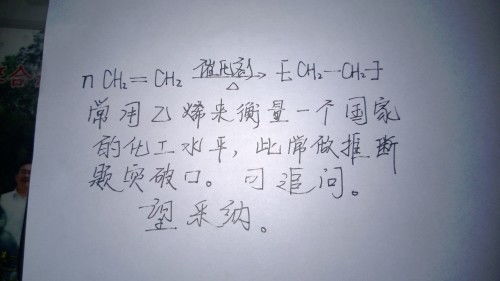 nCH₂=CH₂ 催化剂→△ [CH₂-CH₂]
常用乙烯来衡量一个国家
的化工水平，此常做推断
题突破口。可追问。
望采纳。